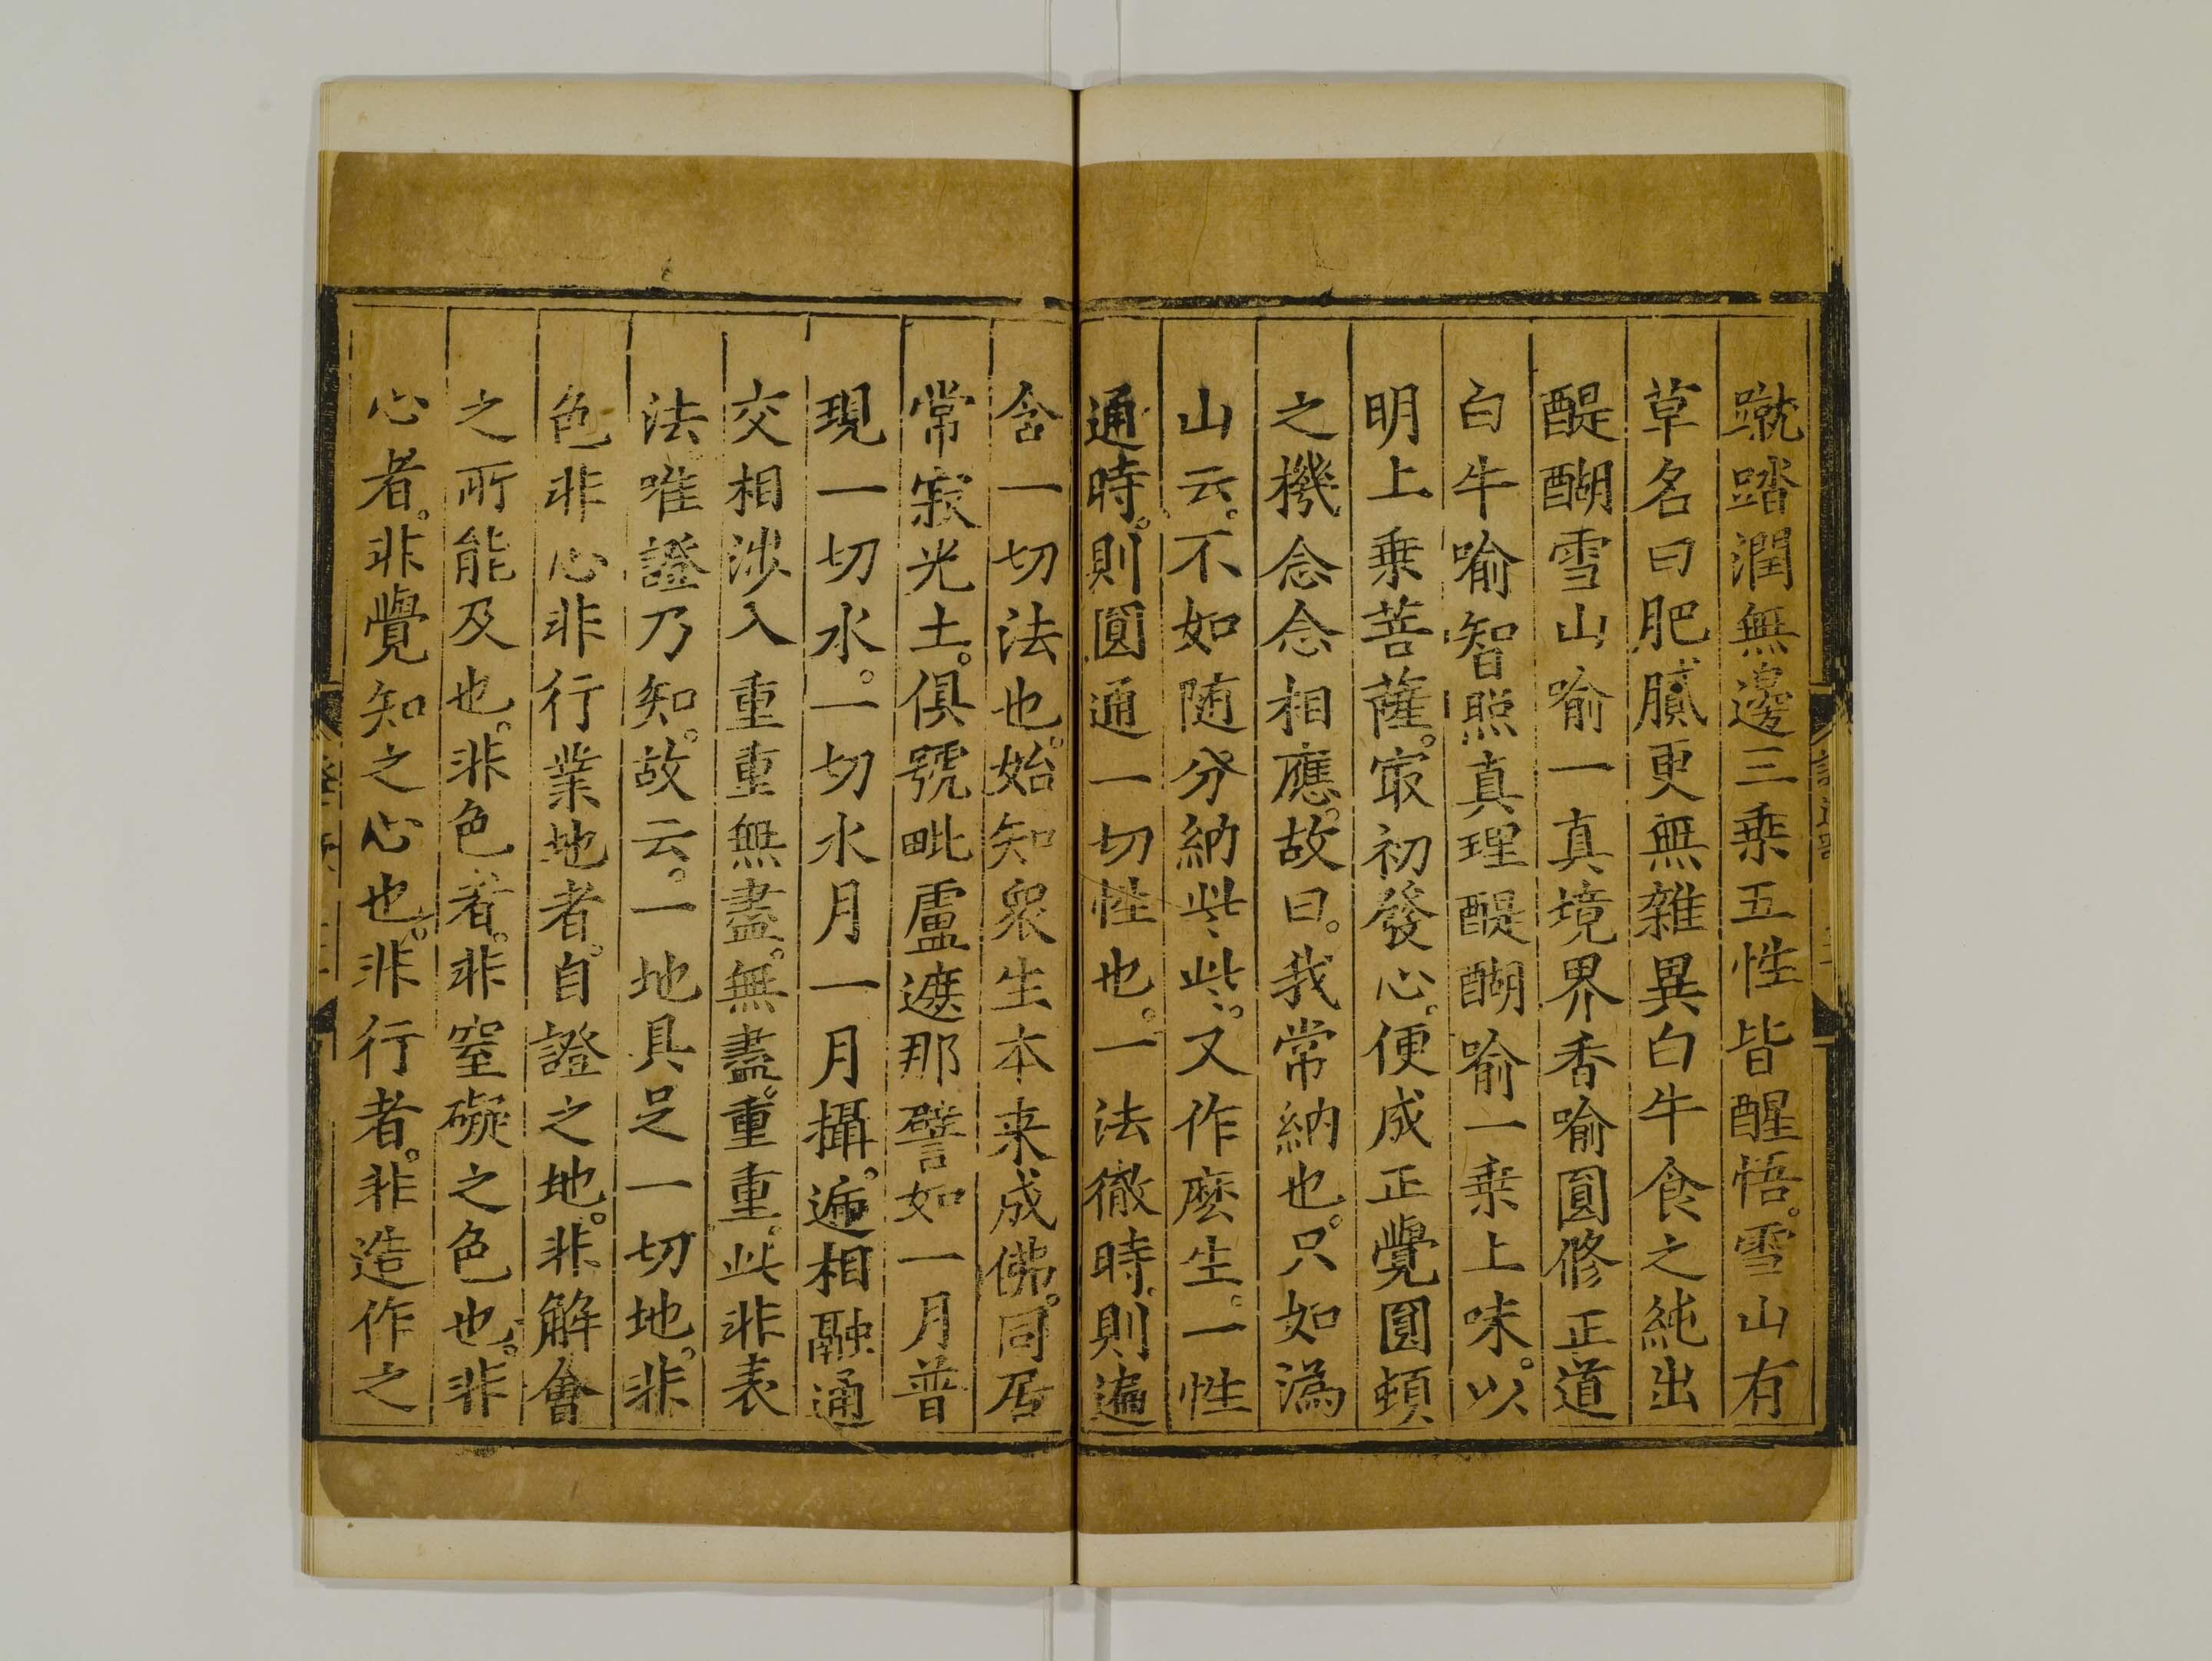 蹴踏潤無邊三乗五性皆醒悟。雪山有
草名曰肥膩更無雜異白牛食之純出
醍醐雪山喻一真境界香喻圓修正道
白牛喻智照真理醍醐喻一乗上味。以
明上乗菩薩。㝡初發心。便成正覺圓頓
之機念念相應。故曰。我常納也。只如溈
山云。不如随分納些些。又作麽生。一性
通時。則圓通一切性也。一法徹時則遍
含一切法也。始知衆生本来成佛。同居
常寂光土。俱號毗盧遮那譬如一月普
現一切水。一切水月一月攝。遍相融通
交相渉入重重無盡。無盡。重重。此非表
法。唯證乃知。故云。一地具足一切地。非
色非心非行業地者。自證之地。非解會
之所能及也。非色者。非窒礙之色也。非
心者。非覺知之心也。非行者。非造作之